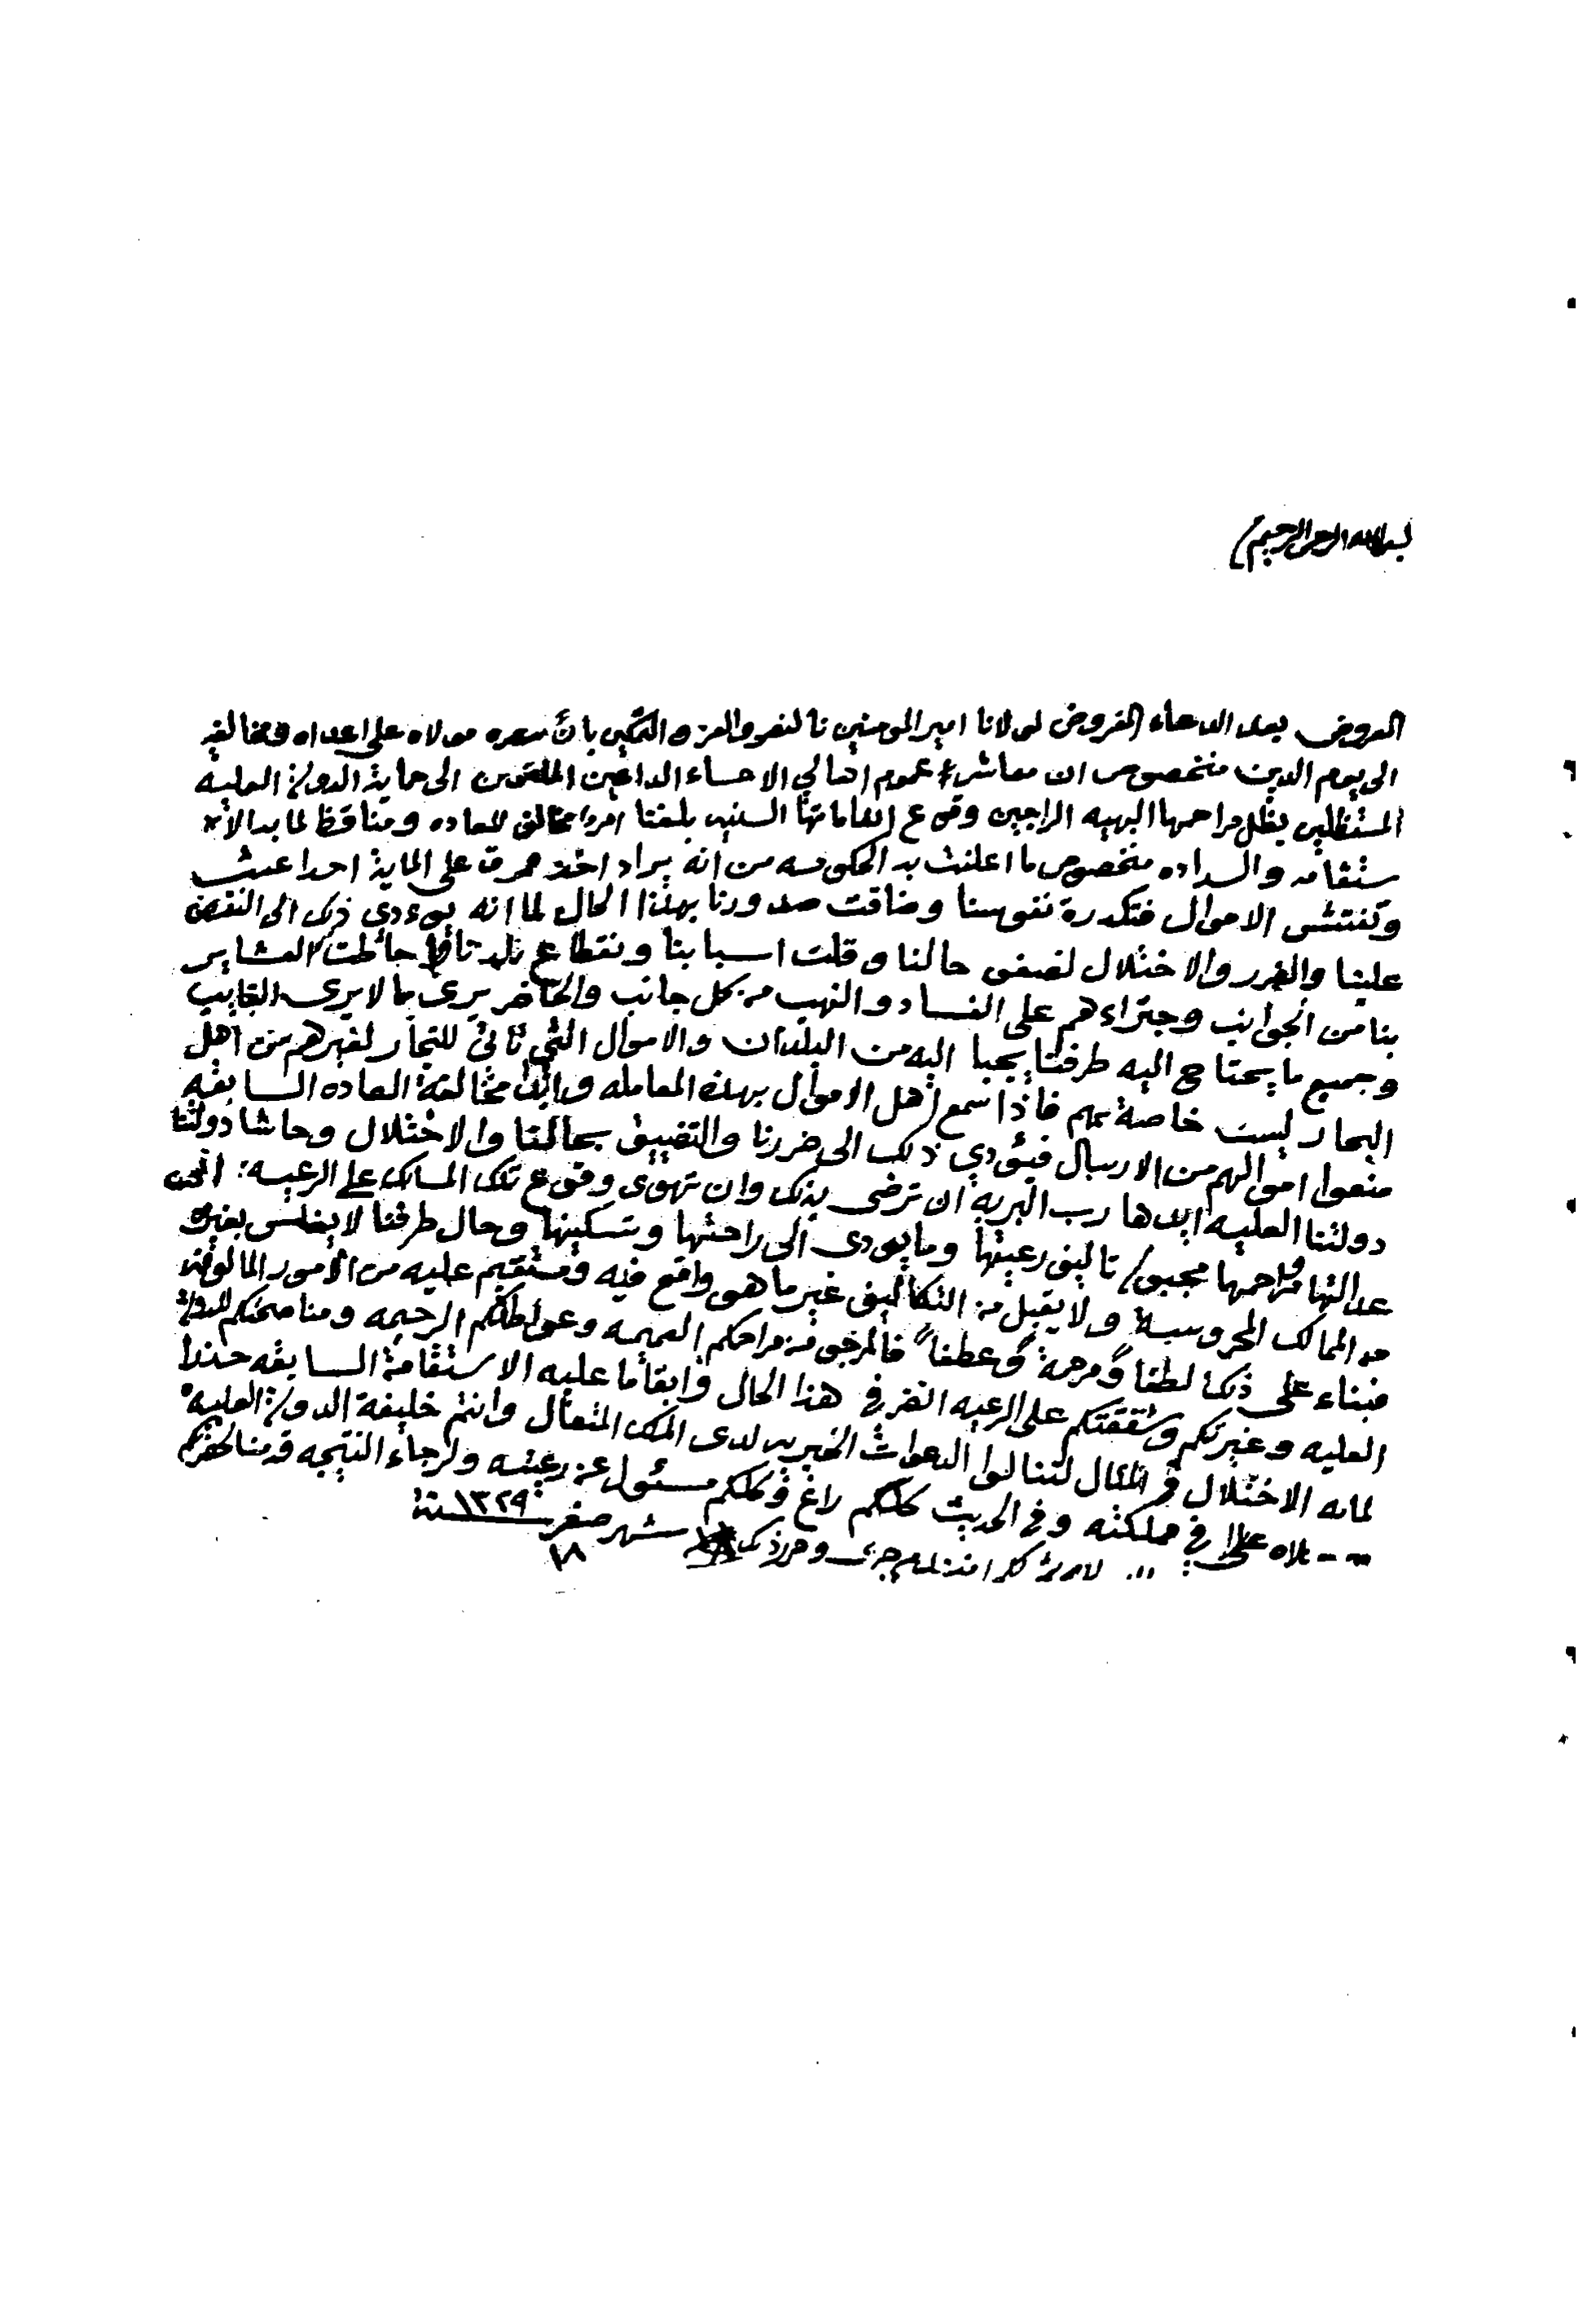 بسم الله الرحمن الرحيم
المعروض بعد الدعاء المفروض لمولانا امير المومنين بالنصر والعز والتمكين بان ينصره مولاه على اعداه ومخالفيه
الى يوم الدين منخصوص ان معاشر عموم اهالي الاحساء الداعين الملتمسين الى حماية الدولة العليه
المستظلين بظل مراحمها البهيه الراجين وقوع انعاماتها السنيه بلغنا امرا مخالف للعاده ومناقظ لما بدا الا
ستقامه والسداده منخصوص ما اعلنت به الحكومه من انه يراد اخذ كمرق على الماية احدا عشر
وتفتتش الاموال فتكدرة نفوسنا وضاقت صدورنا بهذا الحال لما انه يوءدى ذلك الى النقص
علينا والضرر والاختلال لضعف حالنا وقلت اسبابنا ونقطاع بلدتنا احاطت العشاير
بنا من الجوانب وجتراءهم على الفساد والنهب من كل جانب والحاضر يرى ما لا يرى الغايب
وجميع ما يحتاج اليه طرفنا يجبا اليه من البلدان والاموال التي تاتي للتجار لغيرهم من اهل
البحار ليست خاصة بهم فاذا سمع اهل الاموال بهذه المعامله وانها مخالفة العاده السابقه
منعوا اموالهم من الارسال فيئودي ذلك الى ضررنا والتضييق بحالنا والاختلال وحاشا دولتنا
دولتنا العليه ايدها رب البريه ان ترضى بذلك وان تهوى وقوع تلك المسالك على الرعيه
عدالتها ومراحمها تاليف رعيتها وما يودى الى راحتها وتسكينها وحال طرفنا لا يغلس بغيره
من الممالك المحروسة ولا يقبل من التكاليف غير ما هو واقع فيه ومستقيم عليه من الامور المالوفة
فبناء على ذلك لطفا ومرحمة وعطفا فالمرجو من مراحمكم العميمه وعواطفكم الرحيمه ومناصحتكم للدولة
العليه وغيرتكم وشفقتكم على الرعيه النضر في هذا الحال وابقاما عليه الاستقامة السابقه حذرا
لمابه الاختلال في المئال لتنالوا الدعوات الخيريه لدى الملك المتعال وانتم خليفة الدولة العليه
علا في مملكته وفي الحديث كلكم راع وكلكم مسئول عن رعيته ولرجاء النتيجه قدمنا لحضرتكم
جرى وحرر ذلك شهر صفر ١٣٢٩ سنة
١٨